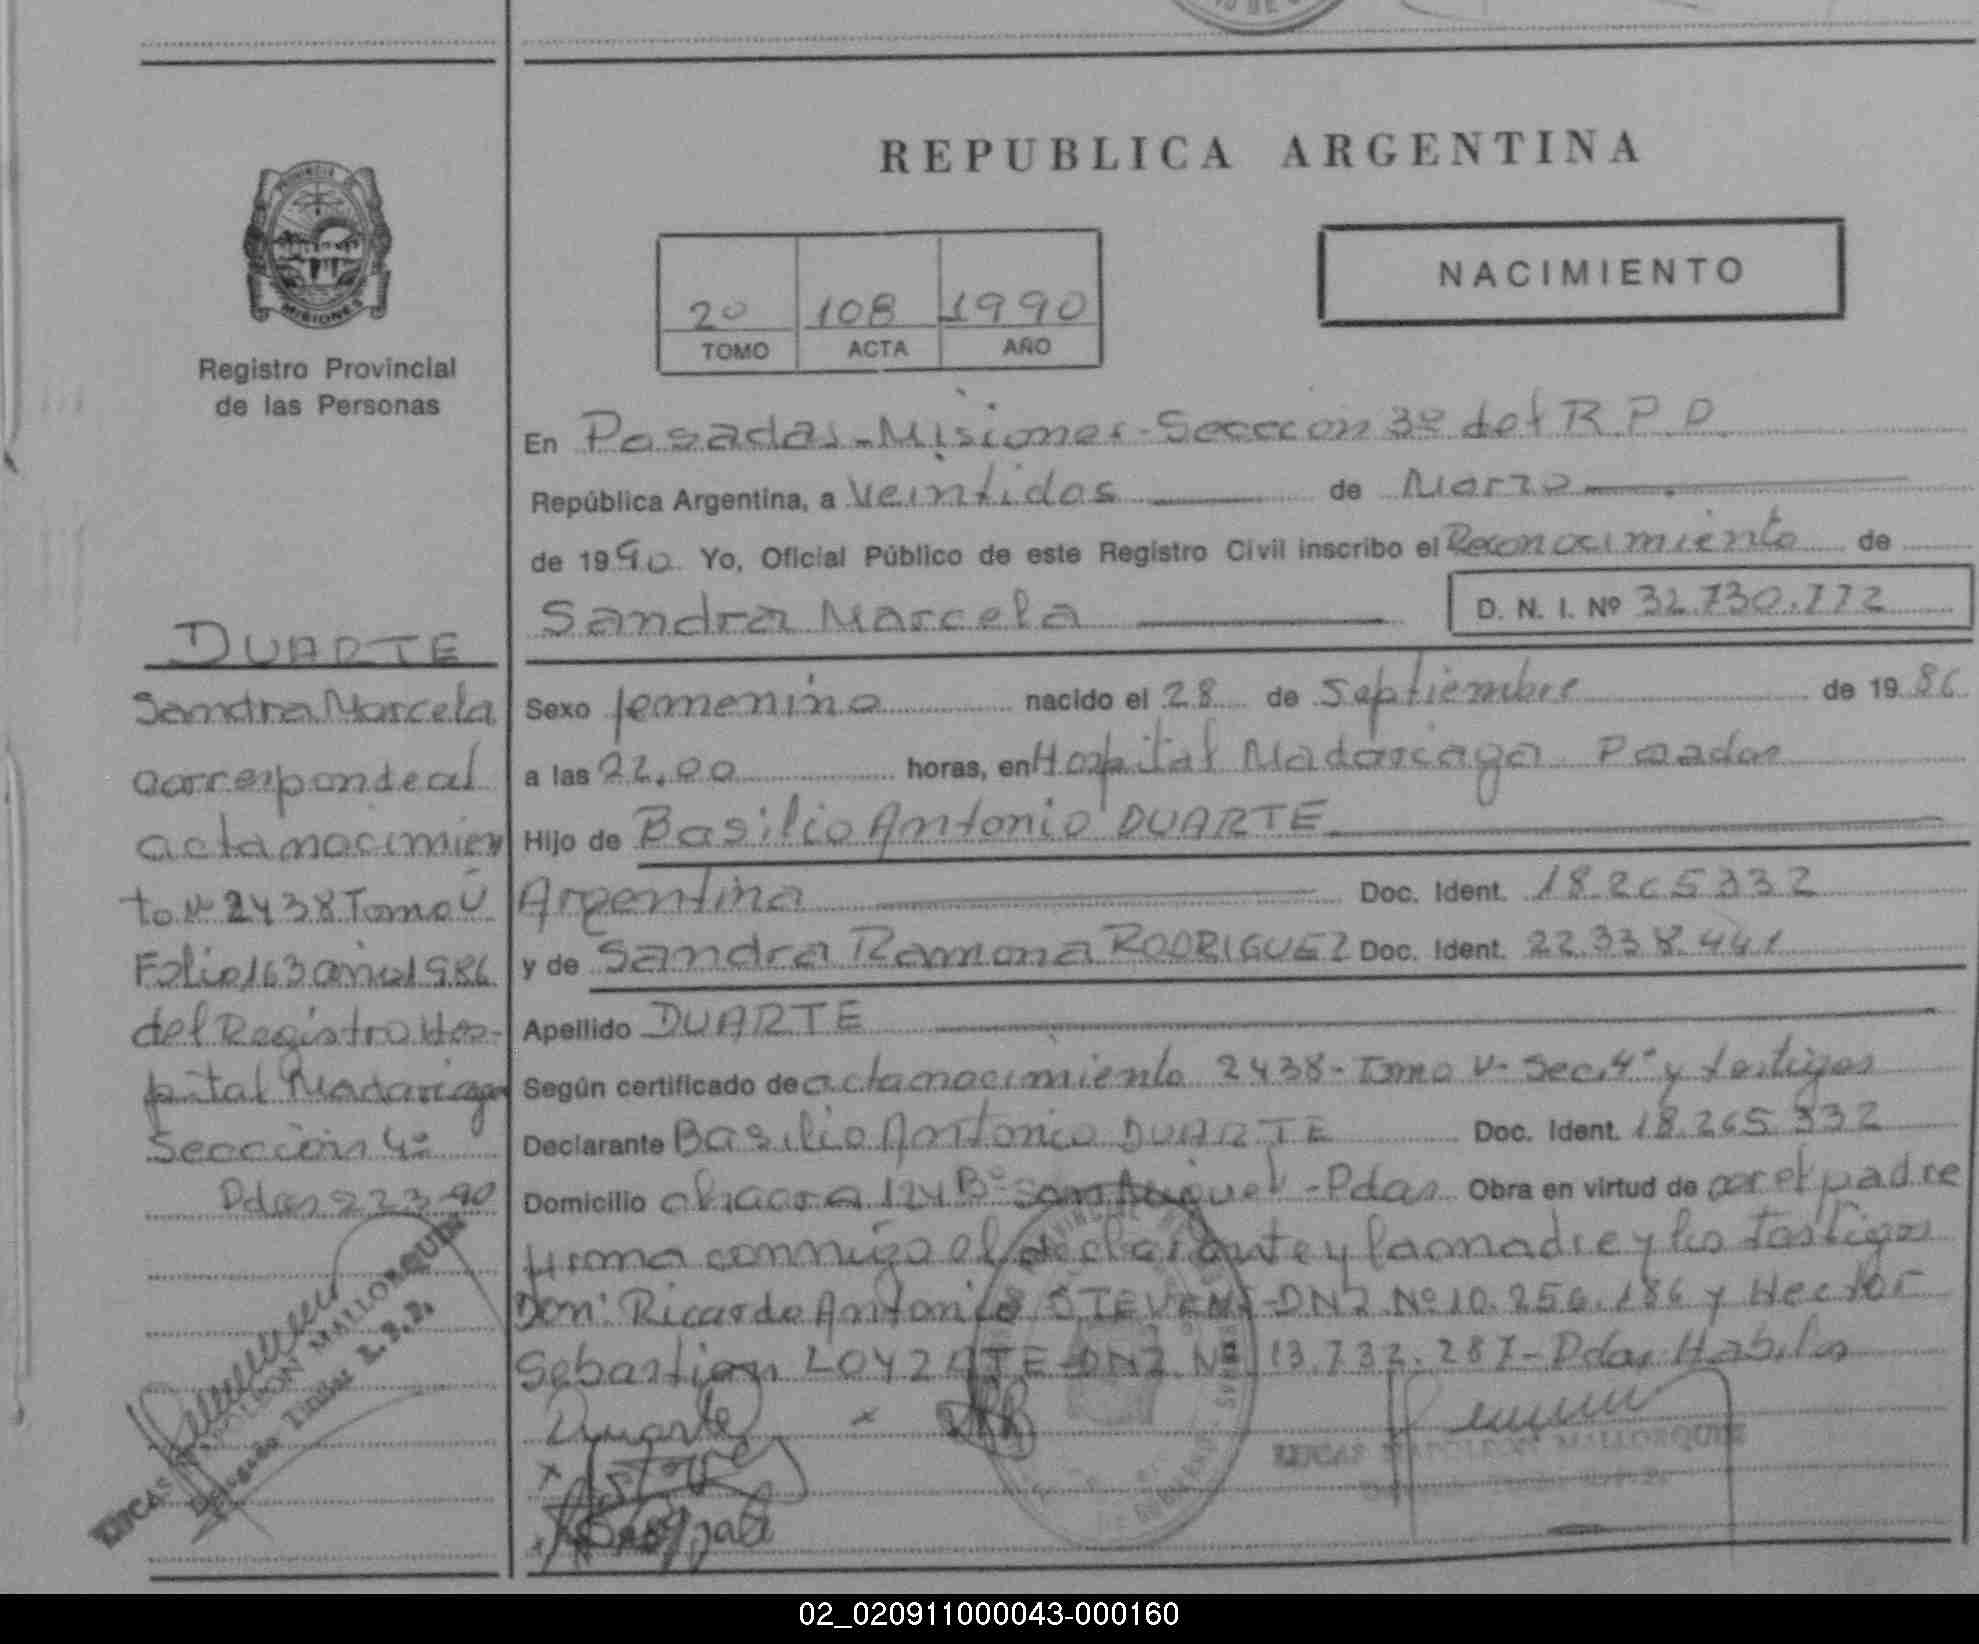 REPUBLICA ARGENTINA
NACIMIENTO
20 108 1990
TOMO ACTA AÑO
PROVINCIA DE
MISIONES
Registro Provincial
de las Personas
DUARTE
Sandra Marcela
corresponde al
acta nacimien
to Nº 2438 Tomo V
Folio 163 año 1986
del Registro Hos-
pital Madariaga
Sección 4º
Pdas 22 3 90
LUCAS NAPOLEON MALLORQUIN
Delegado Titular R.P.P.
En Posadas - Misiones - Sección 3º del R.P.P.
República Argentina, a Veintidos de Marzo
de 1990 Yo, Oficial Público de este Registro Civil inscribo el Reconocimiento de
Sandra Marcela D. N. I. Nº 32.730.772
Sexo femenino nacido el 28 de Septiembre de 1986
a las 22.00 horas, en Hospital Madariaga Posadas
Hijo de Basilio Antonio DUARTE
Argentina Doc. Ident. 18.265332
y de Sandra Ramona RODRIGUEZ Doc. Ident. 22.338.441
Apellido DUARTE
Según certificado de acta nacimiento 2438 - Tomo V - Sec. 4º y testigos
Declarante Basilio Antonio DUARTE Doc. Ident. 18.265.332
Domicilio chacra 124 Bº San Miguel - Pdas Obra en virtud de ser el padre
firma conmigo el declarante y la madre y los testigos
Don: Ricardo Antonio STEVENS - DNI Nº 10.256.186 y Hector
Sebastian LOYZATE - DNI Nº 13.732.287 - Pdas Habiles
Duarte
LUCAS NAPOLEON MALLORQUIN
02_020911000043-000160